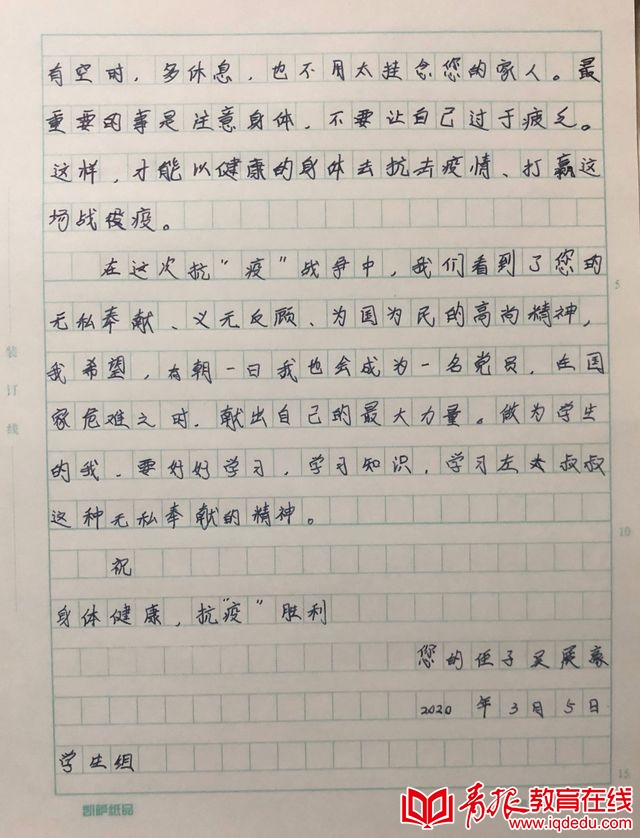 有空时，多休息，也不用太挂念您的家人。最
重要的事是注意身体，不要让自己过于疲乏。
这样，才能以健康的身体去抗击疫情、打赢这
场战役疫。
在这次抗“疫”战争中，我们看到了您的
无私奉献、义无反顾、为国为民的高尚精神，
我希望，有朝一日我也会成为一名党员，在国
家危难之时，献出自己的最大力量。做为学生
的我，要好好学习，学习知识，学习左大叔叔
这种无私奉献的精神。
祝
身体健康，抗“疫”胜利
您的侄子吴展豪
2020年3月5日
学生组
装订线
5
10
15
凯萨纸品
青报教育在线
www.iqdedu.com